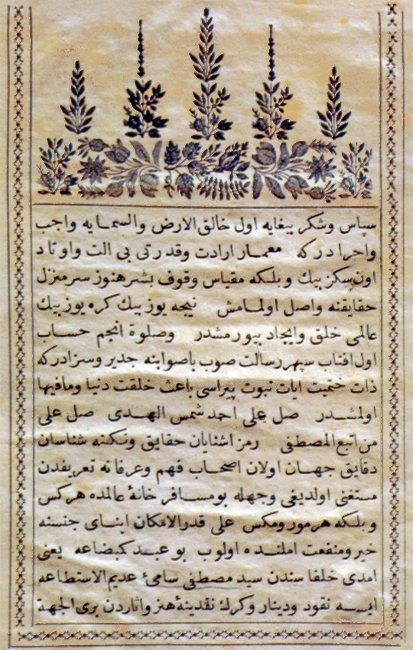 سپاس وشكر بيغايه اول خالق الارض والسمايه واجب
واحرادركه معمار ارادت وقدرتى بى الت واوتاد
اون سكز بيك وبلكه مقياس وقوف بشر هنوز سرمنزل
حقايقنه واصل اولمامش نيچه يوز بيك كره يوز بيك
عالمى خلق وايجاد بيورمشدر وصلوة انجم حساب
اول افتاب سپهر رسالت صوب باصوابنه جدير وسزادركه
ذات ختميت ايات نبوت پيراسى باعث خلقت دنيا ومافيها
اولمشدر صل على احمد شمس الهدى صل على
من اتبع المصطفى رمز اشنايان حقايق ونكته شناسان
دقايق جهان اولان اصحاب فهم وعرفانه تعريفدن
مستغنى اولديغى وجهله بو مسافر خانهٔ عالمده هركس
وبلكه هر مور ومكس على قدر الامكان ابناى جنسنه
خير ومنفعت املنده اولوب بو عبد كم بضاعه يعنى
امدى خلفا سندن سيد مصطفى سامىٔ عديم الاستطاعه
ايسه نقود ودينار وكرك نقدينهٔ هنر واثاردن برى الجهة